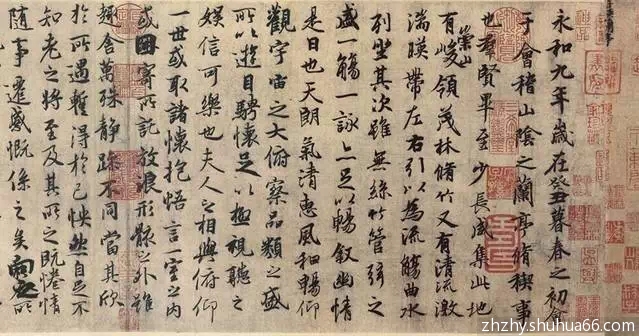 永和九年歲在癸丑暮春之初會
于會稽山陰之蘭亭脩稧事
也羣賢畢至少長咸集此地
有崇山峻領茂林脩竹又有清流激
湍暎帶左右引以為流觴曲水
列坐其次雖無絲竹管弦之
盛一觴一詠亦足以暢敘幽情
是日也天朗氣清惠風和暢仰
觀宇宙之大俯察品類之盛
所以遊目騁懷足以極視聽之
娛信可樂也夫人之相與俯仰
一世或取諸懷抱悟言一室之內
或因寄所託放浪形骸之外雖
趣舍萬殊靜躁不同當其欣
於所遇暫得於己怏然自足不
知老之將至及其所之既惓情
隨事遷感慨係之矣向之所
zhzhy.shuhua66.com